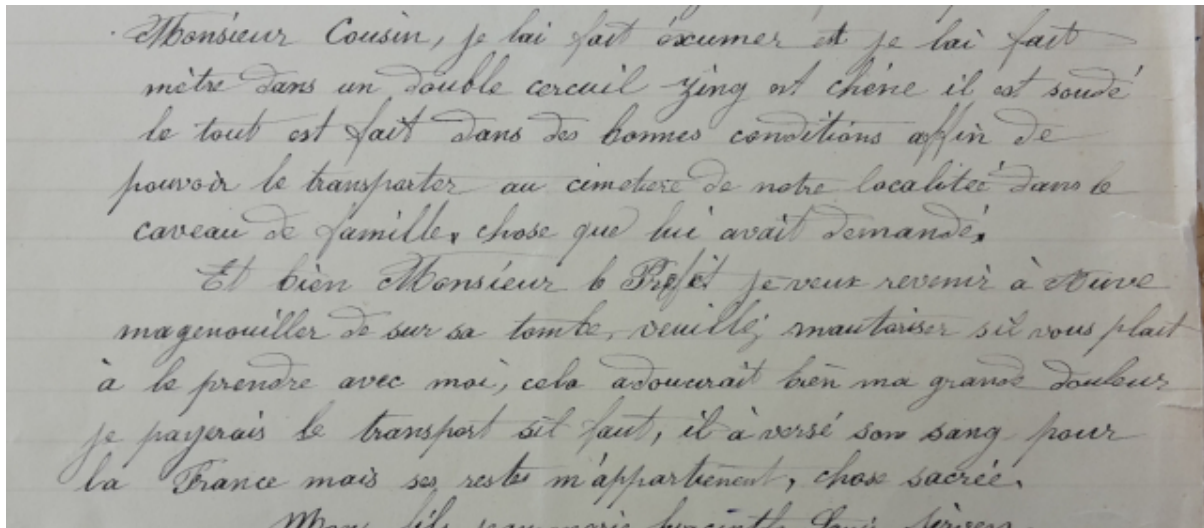 Monsieur Cousin, je lai fait éxumer et je lai fait
mètre dans un double cercuil zing et chêne il est soudé
le tout est fait dans des bonnes conditions affin de
pouvoir le transporter au cimetiere de notre localiteé dans le
caveau de famille, chose que lui avait demandé,
Et bien Monsieur le Prefèt je veux revenir à
magenouiller de sur sa tombe, veuillé mautoriser sil vous plait
à le prendre avec moi, cela adoucirait bien ma grande douleur
je payerais le transport sil faut, il à versé son sang pour
la France mais ses restes m'appartienent, chose sacrée,
Mon fils jean marie hyacinthe Louis